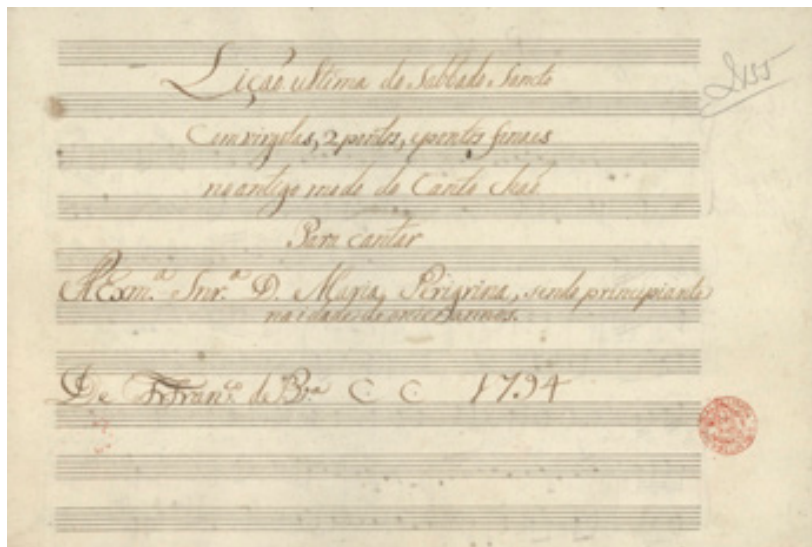 Lição ultima do Sabbado Sancto
2155
Com virgolas, 2 pontos, e pontos finaes
no antigo modo do Canto chaõ
Para cantar
A Exm.ª Snr.ª D. Maria Perigrina, sendo principiante
na idade de onze annos.
De Fr. Fran.co de B.a C. C. 1794